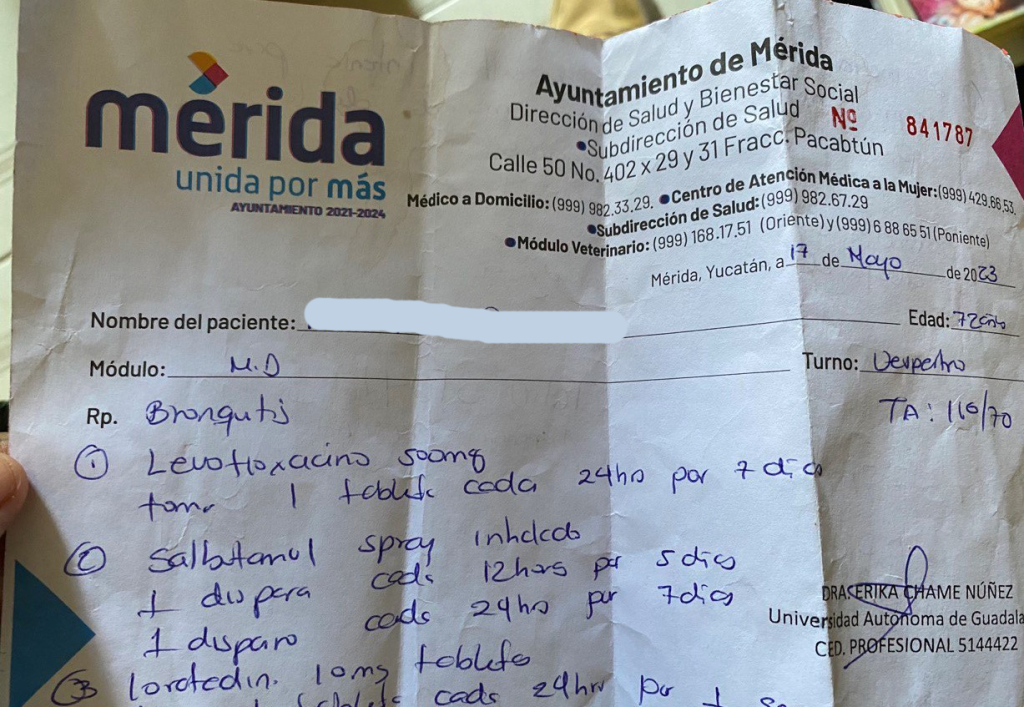 mérida
unida por más
AYUNTAMIENTO 2021-2024
Ayuntamiento de Mérida
Dirección de Salud y Bienestar Social
•Subdirección de Salud
Nº 841787
Calle 50 No. 402 x 29 y 31 Fracc. Pacabtún
Médico a Domicilio: (999) 982.33.29. •Centro de Atención Médica a la Mujer: (999) 429.66.53.
•Subdirección de Salud: (999) 982.67.29
•Módulo Veterinario: (999) 168.17.51 (Oriente) y (999) 6 88 65 51 (Poniente)
Mérida, Yucatán, a 17 de Mayo de 2023
Nombre del paciente:
Edad: 72 año
Módulo: M.D
Turno: Vespertno
Rp. Bronquitis
TA: 110/70
① Levofloxacino 500mg
tomr 1 tableta cada 24hrs por 7 dias
② Salbutamol spray inhalado
1 disparo cada 12hors por 5 dias
1 disparo cada 24hrs por 7 dias
③ loratadin. 10mg tableta
tableta cada 24hrs por 1
DRA. ERIKA CHAME NÚÑEZ
Universidad Autónoma de Guadala
CED. PROFESIONAL 5144422